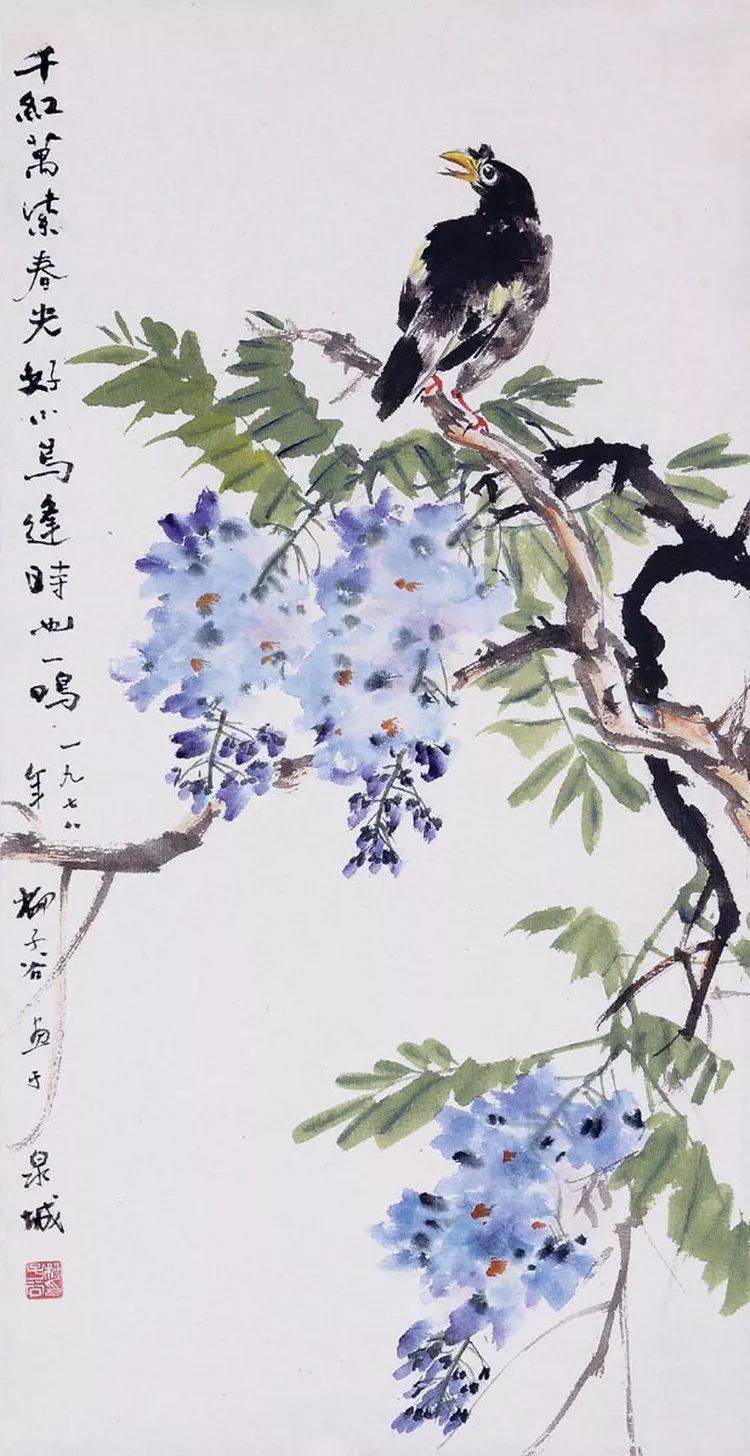 千紅萬紫春光好小鳥逢時也一鳴
一九七八
年
柳子谷画于
泉城